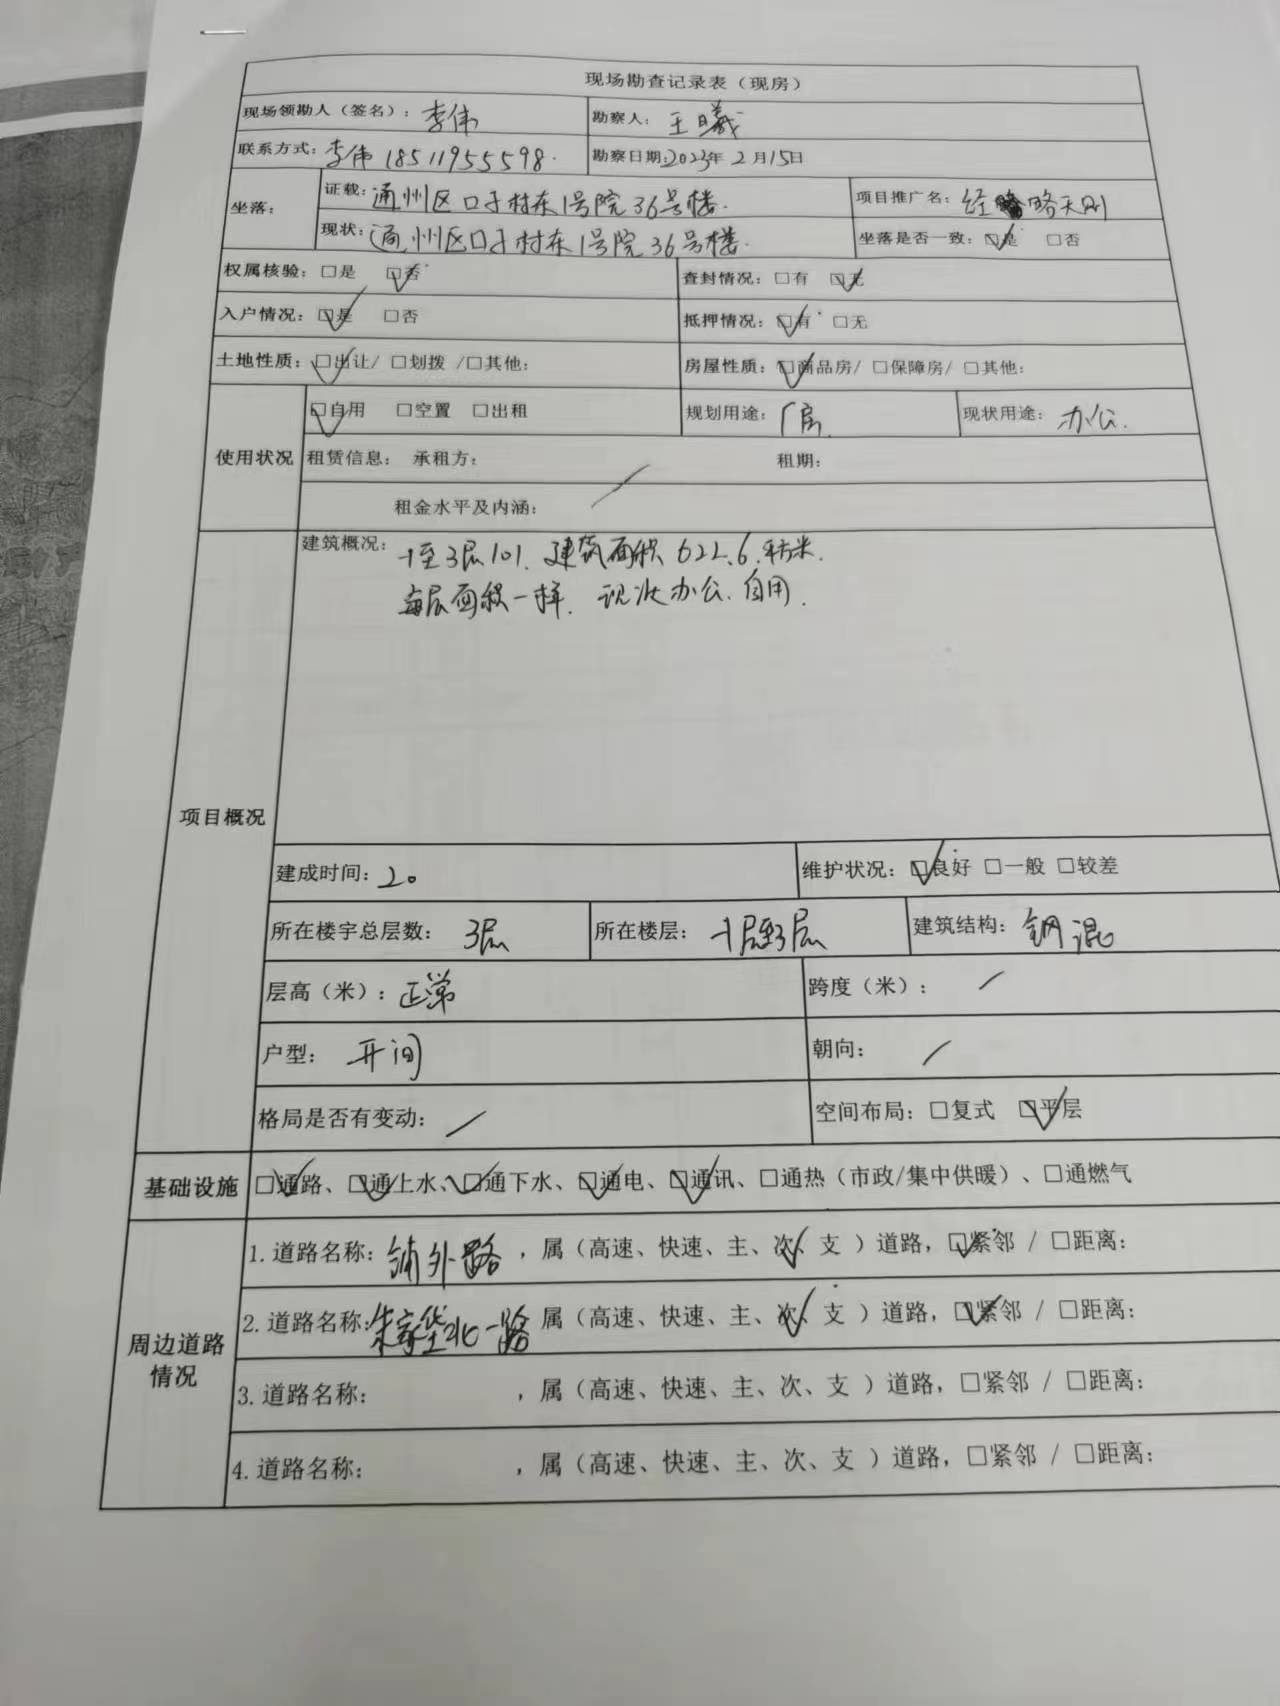 现场勘查记录表（现房）
现场领勘人（签名）：李伟 勘察人：王曦
联系方式：李伟 18511955598. 勘察日期:2023年2月15日
坐落： 证载：通州区口子村东1号院36号楼. 项目推广名：经略天则
现状：通州区口子村东1号院36号楼. 坐落是否一致：☑是 □否
权属核验：□是 ☑否 查封情况：□有 ☑无
入户情况：☑是 □否 抵押情况：☑有 □无
土地性质：☑出让/ □划拨 /□其他： 房屋性质：☑商品房/ □保障房/ □其他：
使用状况 ☑自用 □空置 □出租 规划用途：厂房 现状用途：办公.
租赁信息： 承租方： 租期：
租金水平及内涵： /
项目概况 建筑概况：-1至3层101. 建筑面积622.6.平方米.
每层面积一样. 现状办公、自用.
建成时间：20 维护状况：☑良好 □一般 □较差
所在楼宇总层数：3层 所在楼层：-1层至3层 建筑结构：钢混
层高（米）：正常 跨度（米）： /
户型：开间 朝向： /
格局是否有变动： / 空间布局：□复式 ☑平层
基础设施 ☑通路、☑通上水、☑通下水、☑通电、☑通讯、□通热（市政/集中供暖）、□通燃气
周边道路情况 1.道路名称：铺外路 ，属（高速、快速、主、次✓、支 ）道路，☑紧邻 / □距离：
2.道路名称:朱家垡北一路 属（高速、快速、主、次✓、支 ）道路，☑紧邻 / □距离：
3.道路名称： ，属（高速、快速、主、次、支 ）道路，□紧邻 / □距离：
4.道路名称： ，属（高速、快速、主、次、支 ）道路，□紧邻 / □距离：